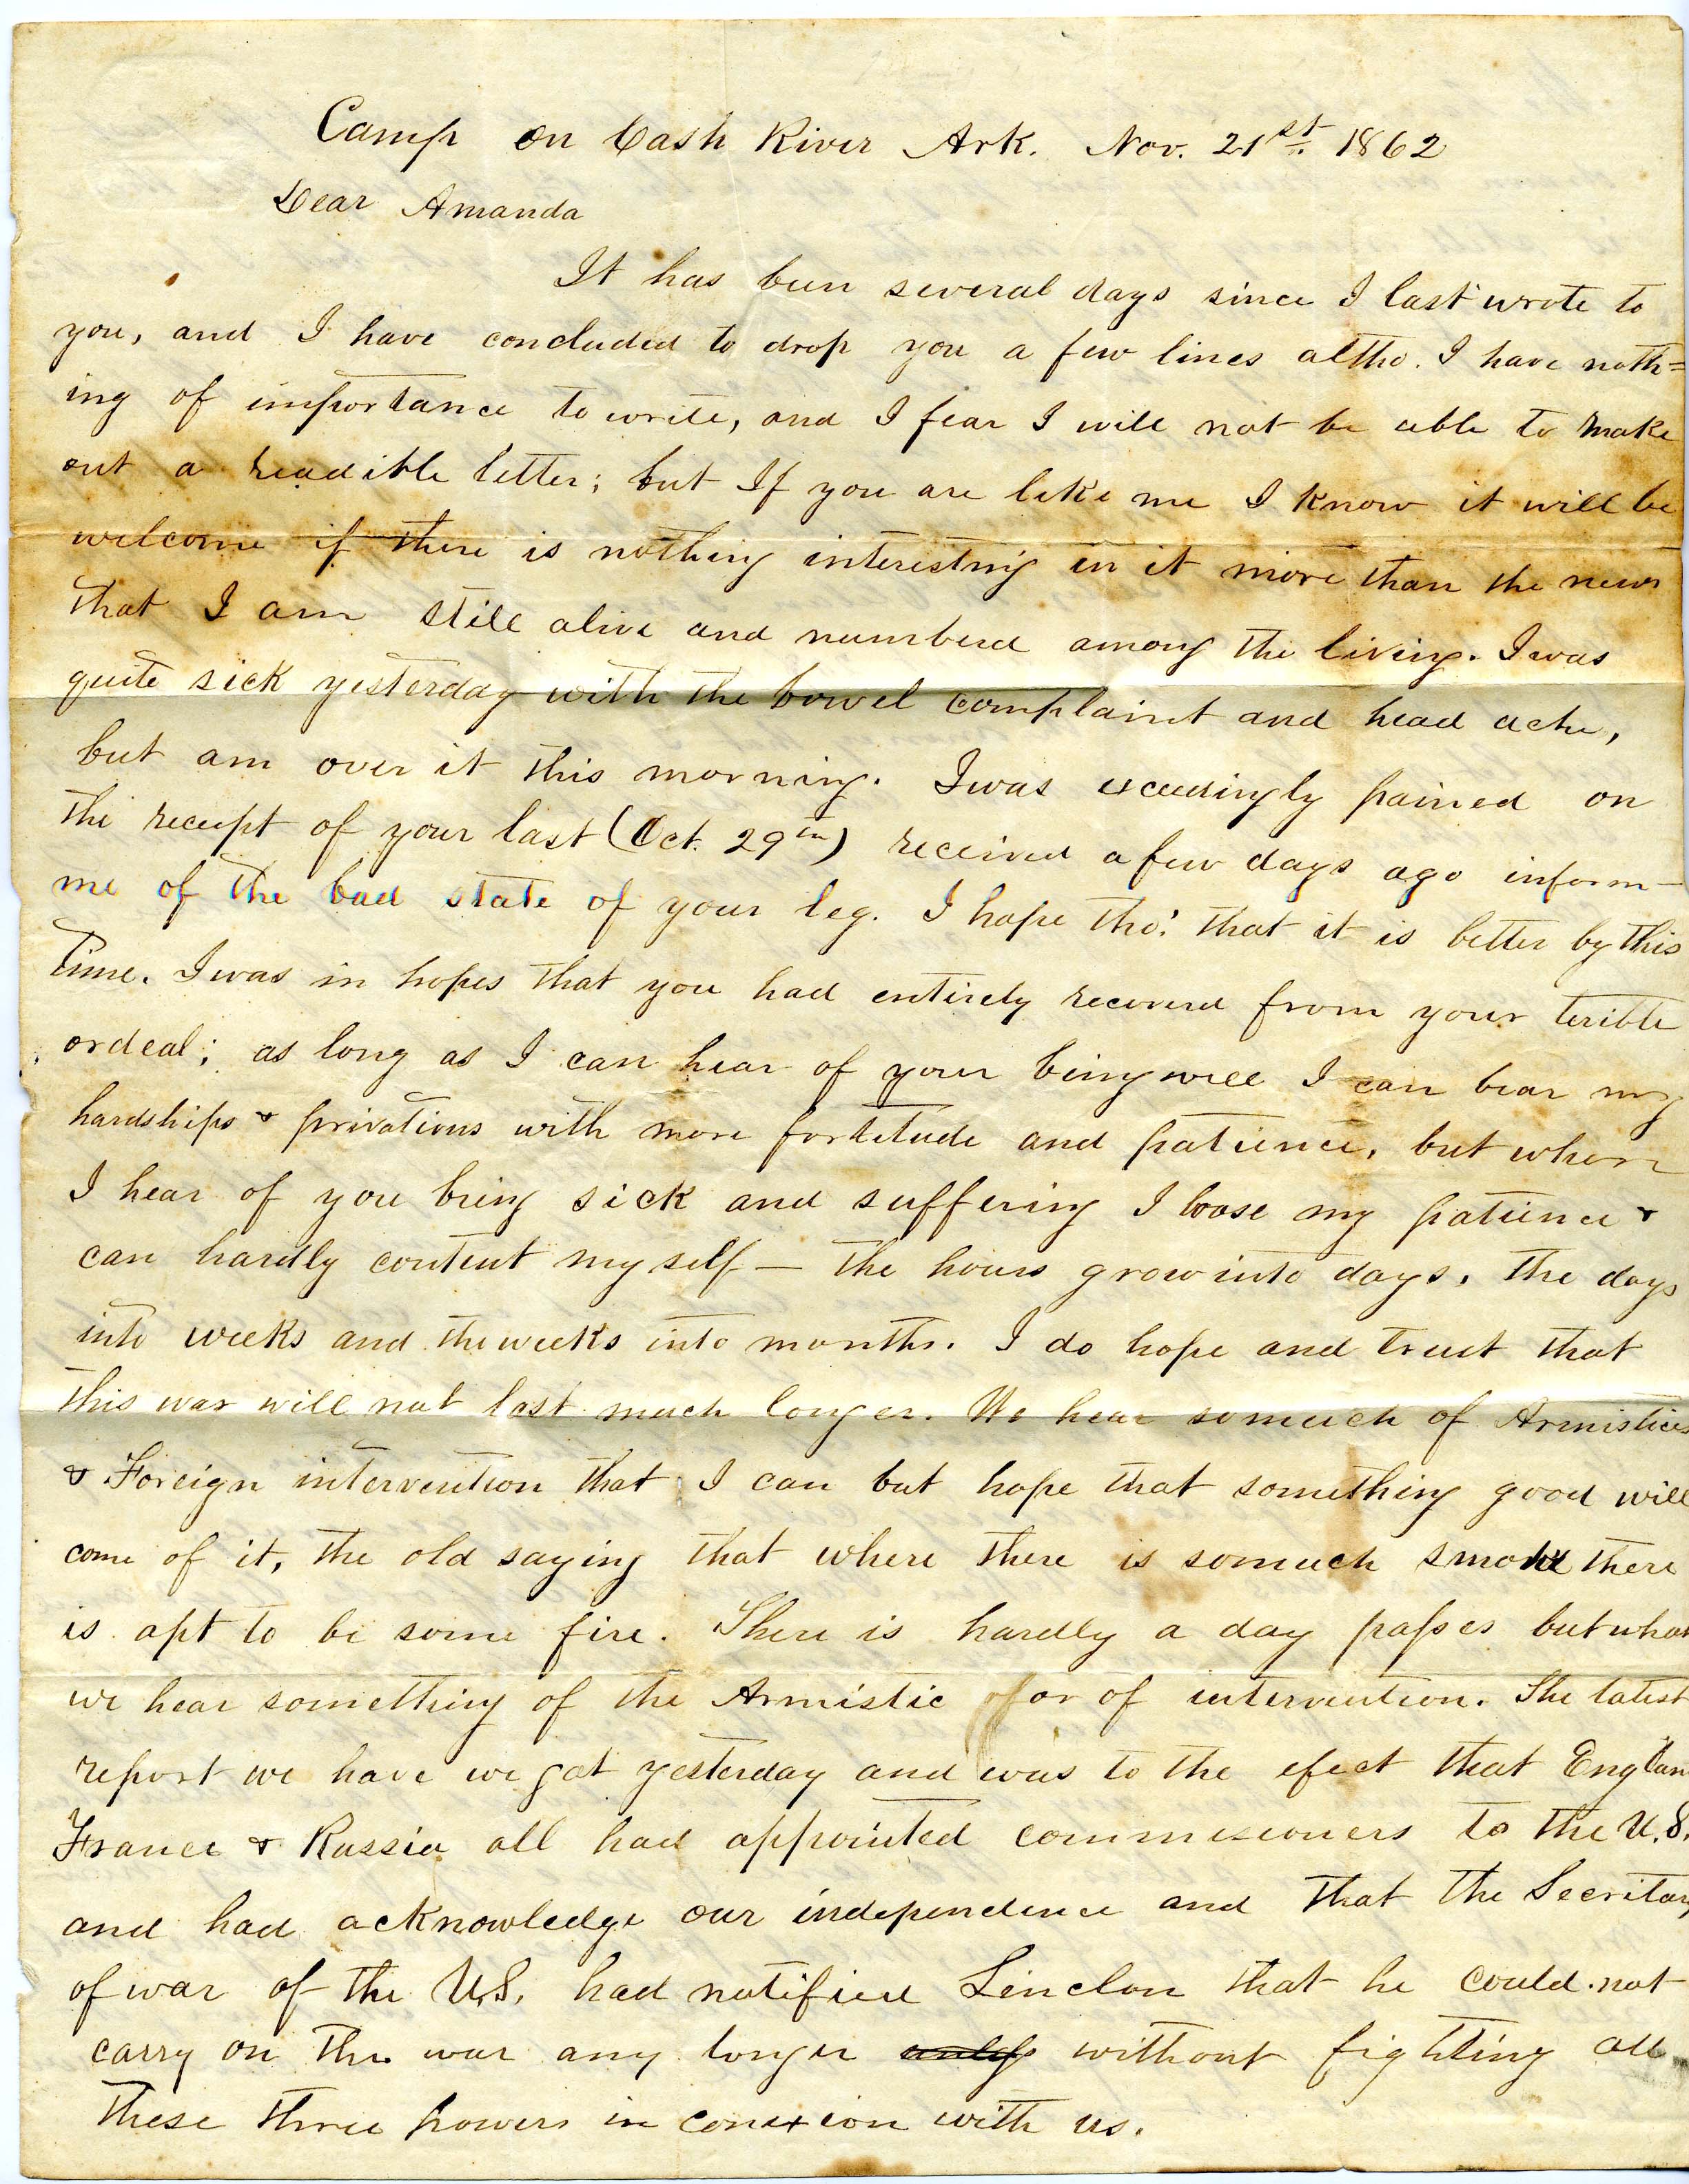 Camp on Cash River Ark. Nov. 21st. 1862
Dear Amanda
It has been several days since I last wrote to
you, and I have concluded to drop you a few lines altho. I have noth=
ing of importance to write, and I fear I will not be able to make
out a readible letter; but If you are like me I know it will be
welcome if there is nothing interesting in it more than the news
that I am still alive and numberd among the living. I was
quite sick yesterday with the bowel complaint and head ache,
but am over it this morning. I was excedingly pained on
the receipt of your last (Oct. 29th) received a few days ago inform-
me of the bad state of your leg. I hope tho' that it is better by this
time. I was in hopes that you had entirely recoverd from your terible
ordeal; as long as I can hear of your being well I can bear my
hardships & privations with more fortitude and patience, but when
I hear of you being sick and suffering I loose my patience &
can hardly content myself — the hours grow into days, the days
into weeks and the weeks into months. I do hope and trust that
this war will not last much longer. We hear so much of Armistices
& Foreign intervention that I can but hope that something good will
come of it, the old saying that where there is so much smoke there
is apt to be some fire. There is hardly a day passes but what
we hear something of the Armistic or of intervention. The latest
report we have we got yesterday and was to the efect that Englan
France & Russia all had appointed commisioners to the U.S.
and had acknowledge our independence and that the Secritary
of war of the U.S. had notified Linclon that he could not
carry on the war any longer only without fighting all
these three powers in conexion with us.